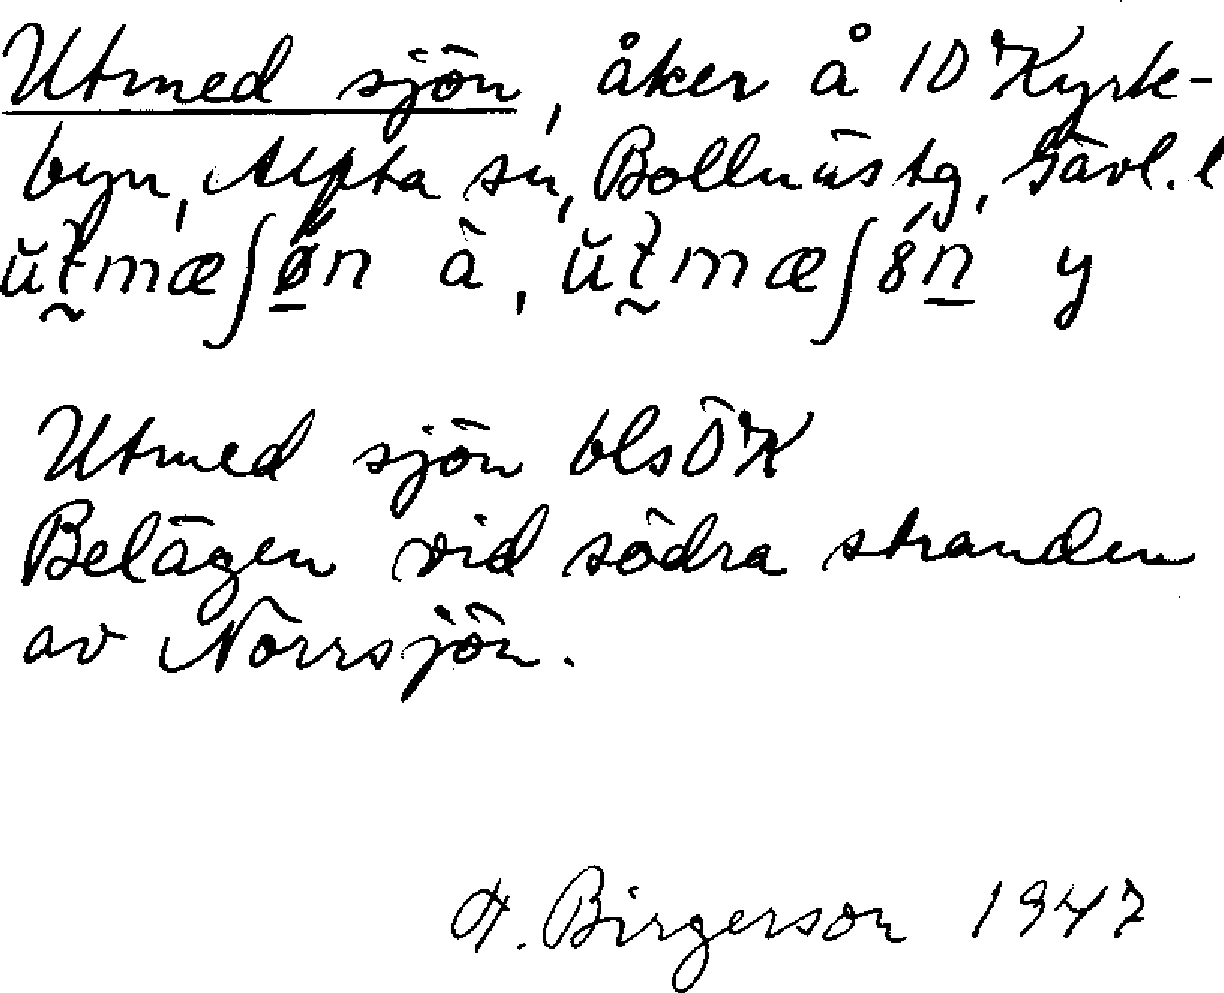 Utmed sjön, åker å 1D Kyrk-
byn, Alfta sn, Bollnäs tg, Gävl. l
ŭt̰mæʃø̱n à, ŭt̰mæʃ8ṉ y
Utmed sjön bls ÖK
Belägen vid södra stranden
av Norrsjön.
A. Birgerson 1947